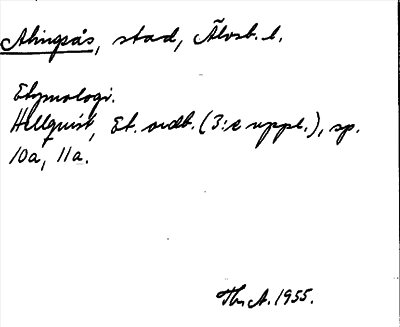 Alingsås, stad, Älvsb. l.
Etymologi.
Hellquist, Et. ordb. (3:e uppl.), sp.
10a, 11a.
A. 1955.